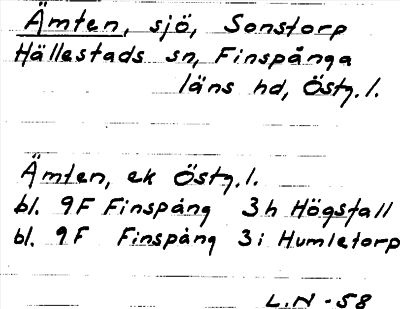 Ämten, sjö, Sonstorp
Hällestads sn, Finspånga
läns hd, Östg.l.
Ämten, ek Östg.l.
bl. 9F Finspång 3h Högstall
bl. 9F Finspång 3i Humletorp
L.N -58